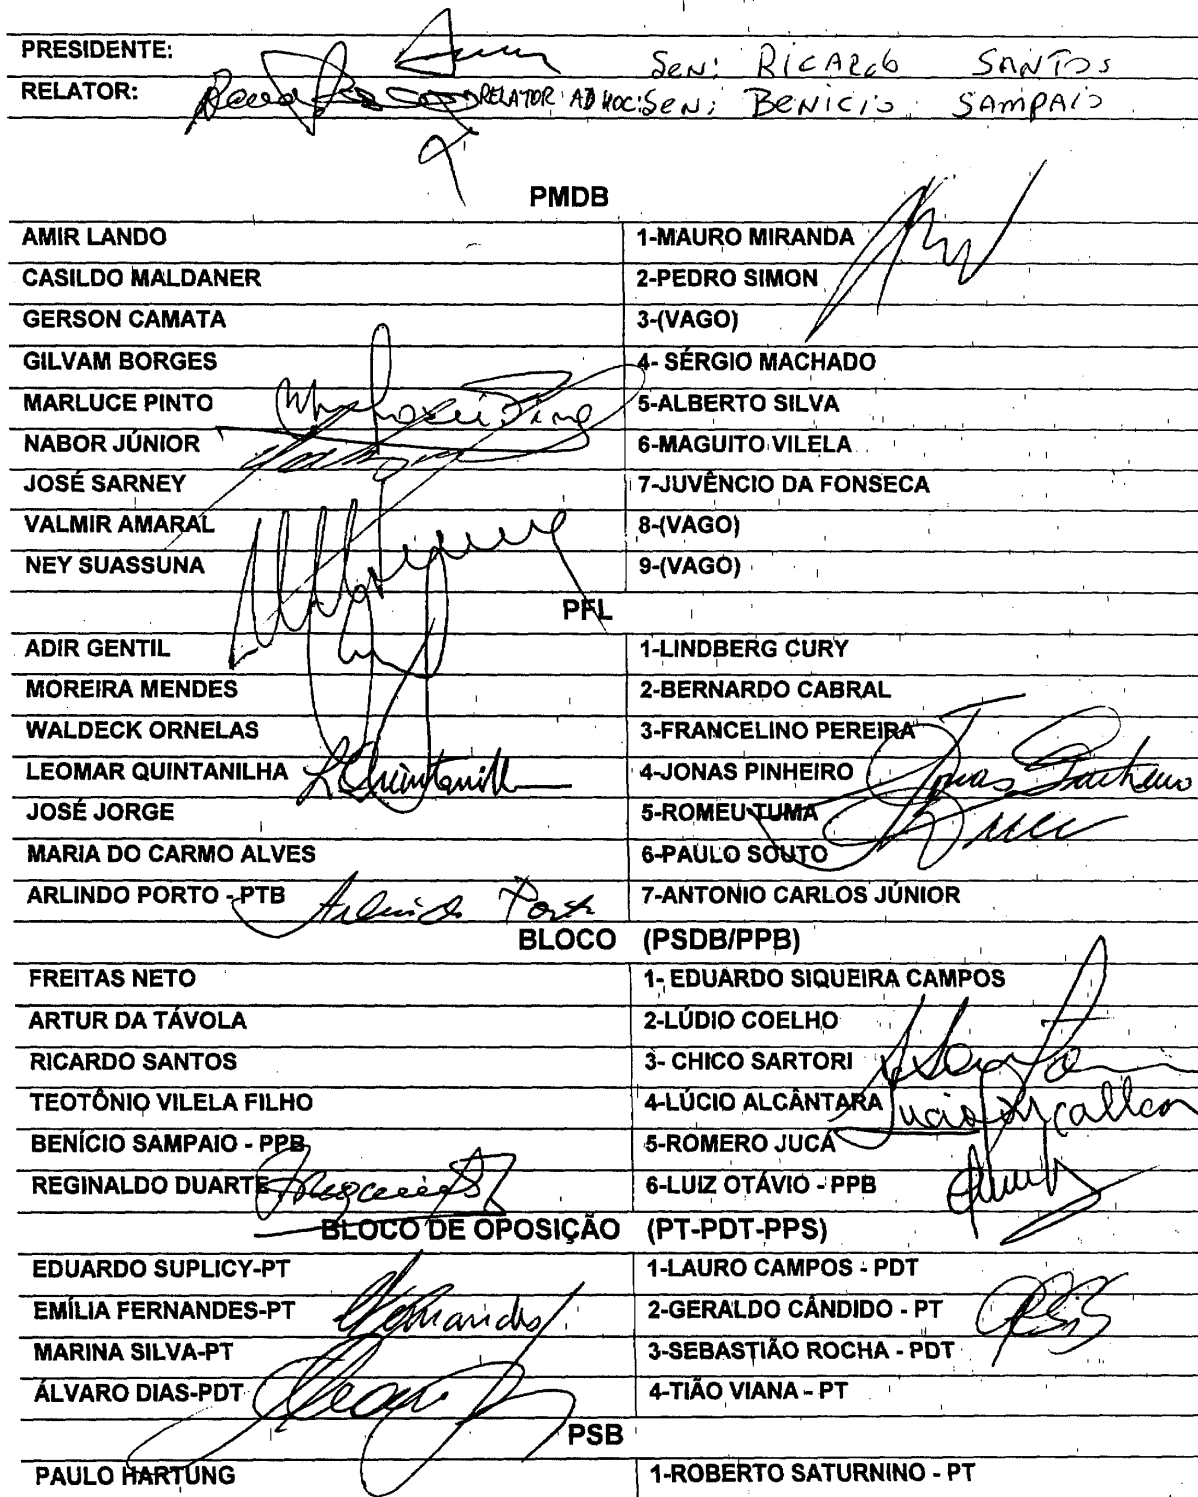 PRESIDENTE: Sen: RICARDO SANTOS
RELATOR: RELATOR AD HOC: Sen: BENICIO SAMPAIO
PMDB
AMIR LANDO 1-MAURO MIRANDA
CASILDO MALDANER 2-PEDRO SIMON
GERSON CAMATA 3-(VAGO)
GILVAM BORGES 4- SÉRGIO MACHADO
MARLUCE PINTO 5-ALBERTO SILVA
NABOR JÚNIOR 6-MAGUITO VILELA
JOSÉ SARNEY 7-JUVÊNCIO DA FONSECA
VALMIR AMARAL 8-(VAGO)
NEY SUASSUNA 9-(VAGO)
PFL
ADIR GENTIL 1-LINDBERG CURY
MOREIRA MENDES 2-BERNARDO CABRAL
WALDECK ORNELAS 3-FRANCELINO PEREIRA
LEOMAR QUINTANILHA LQuintanilh 4-JONAS PINHEIRO Jonas Pinheiro
JOSÉ JORGE 5-ROMEU TUMA
MARIA DO CARMO ALVES 6-PAULO SOUTO
ARLINDO PORTO -PTB Arlindo Porto 7-ANTONIO CARLOS JÚNIOR
BLOCO (PSDB/PPB)
FREITAS NETO 1- EDUARDO SIQUEIRA CAMPOS
ARTUR DA TÁVOLA 2-LÚDIO COELHO
RICARDO SANTOS 3- CHICO SARTORI
TEOTÔNIO VILELA FILHO 4-LÚCIO ALCÂNTARA Lucio
BENÍCIO SAMPAIO - PPB 5-ROMERO JUCÁ
REGINALDO DUARTE 6-LUIZ OTÁVIO - PPB
BLOCO DE OPOSIÇÃO (PT-PDT-PPS)
EDUARDO SUPLICY-PT 1-LAURO CAMPOS - PDT
EMÍLIA FERNANDES-PT 2-GERALDO CÂNDIDO - PT
MARINA SILVA-PT 3-SEBASTIÃO ROCHA - PDT
ÁLVARO DIAS-PDT 4-TIÃO VIANA - PT
PSB
PAULO HARTUNG 1-ROBERTO SATURNINO - PT